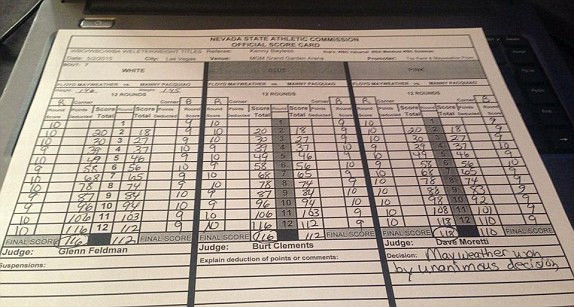 NEVADA STATE ATHLETIC COMMISSION
OFFICIAL SCORE CARD
WBO/WBC/WBA WELTERWEIGHT TITLES Referee: Kenny Bayless
Date: 5/2/2015 City: Las Vegas Venue: MGM Grand Garden Arena Promoter:
WHITE
FLOYD MAYWEATHER vs. MANNY PACQUIAO FLOYD MAYWEATHER vs. MANNY PACQUIAO FLOYD MAYWEATHER vs. MANNY PACQUIAO
12 ROUNDS 12 ROUNDS 12 ROUNDS
R Corner Corner B R Corner Corner B R Corner Corner B
10 1 9 10 9 10 1 9
10 20 2 18 9 10 20 2 18 9 10 20 2 18 9
10 30 3 27 9 10 30 3 27 9 10 30 3 27 9
9 39 4 37 10 9 39 4 37 10 9 39 4 37 10
10 49 5 46 9 10 49 5 46 9 10 49 5 46 9
9 58 6 56 10 9 58 6 56 10 58 6 56 10
10 68 7 65 9 10 68 7 65 9 10 68 7 65 9
10 78 8 74 9 10 78 8 74 9 10 78 8 74 9
9 87 9 84 10 9 87 9 84 10 10 88 9 83 9
9 96 10 94 10 9 96 10 94 10 98 10 92
10 106 11 103 9 10 106 11 103 9 10 108 11 101 9
10 116 12 112 9 10 116 12 112 9 10 118 12 110 9
FINAL SCORE 116 112 FINAL SCORE FINAL SCORE 116 112 FINAL SCORE FINAL SCORE 118 110 FINAL SCORE
Judge: Glenn Feldman Judge: Burt Clements Judge: Dave Moretti
Suspensions: Explain deduction of points or comments: Decision: Mayweather won
by unanimous decision